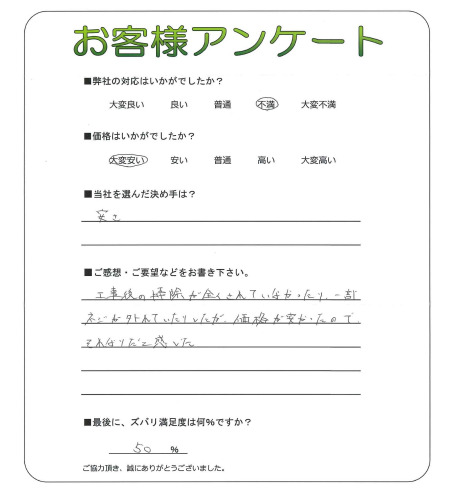 お客様アンケート
■弊社の対応はいかがでしたか？
大変良い 良い 普通 不満 大変不満
■価格はいかがでしたか？
大変安い 安い 普通 高い 大変高い
■当社を選んだ決め手は？
安さ
■ご感想・ご要望などをお書き下さい。
工事後の掃除が全くされていなかったり、一部
ネジが外れていたりしたが、価格が安かったので
それなりだと感じた
■最後に、ズバリ満足度は何％ですか？
50 ％
ご協力頂き、誠にありがとうございました。